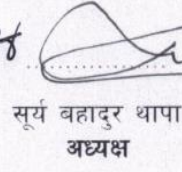 सूर्य बहादुर थापा
अध्यक्ष